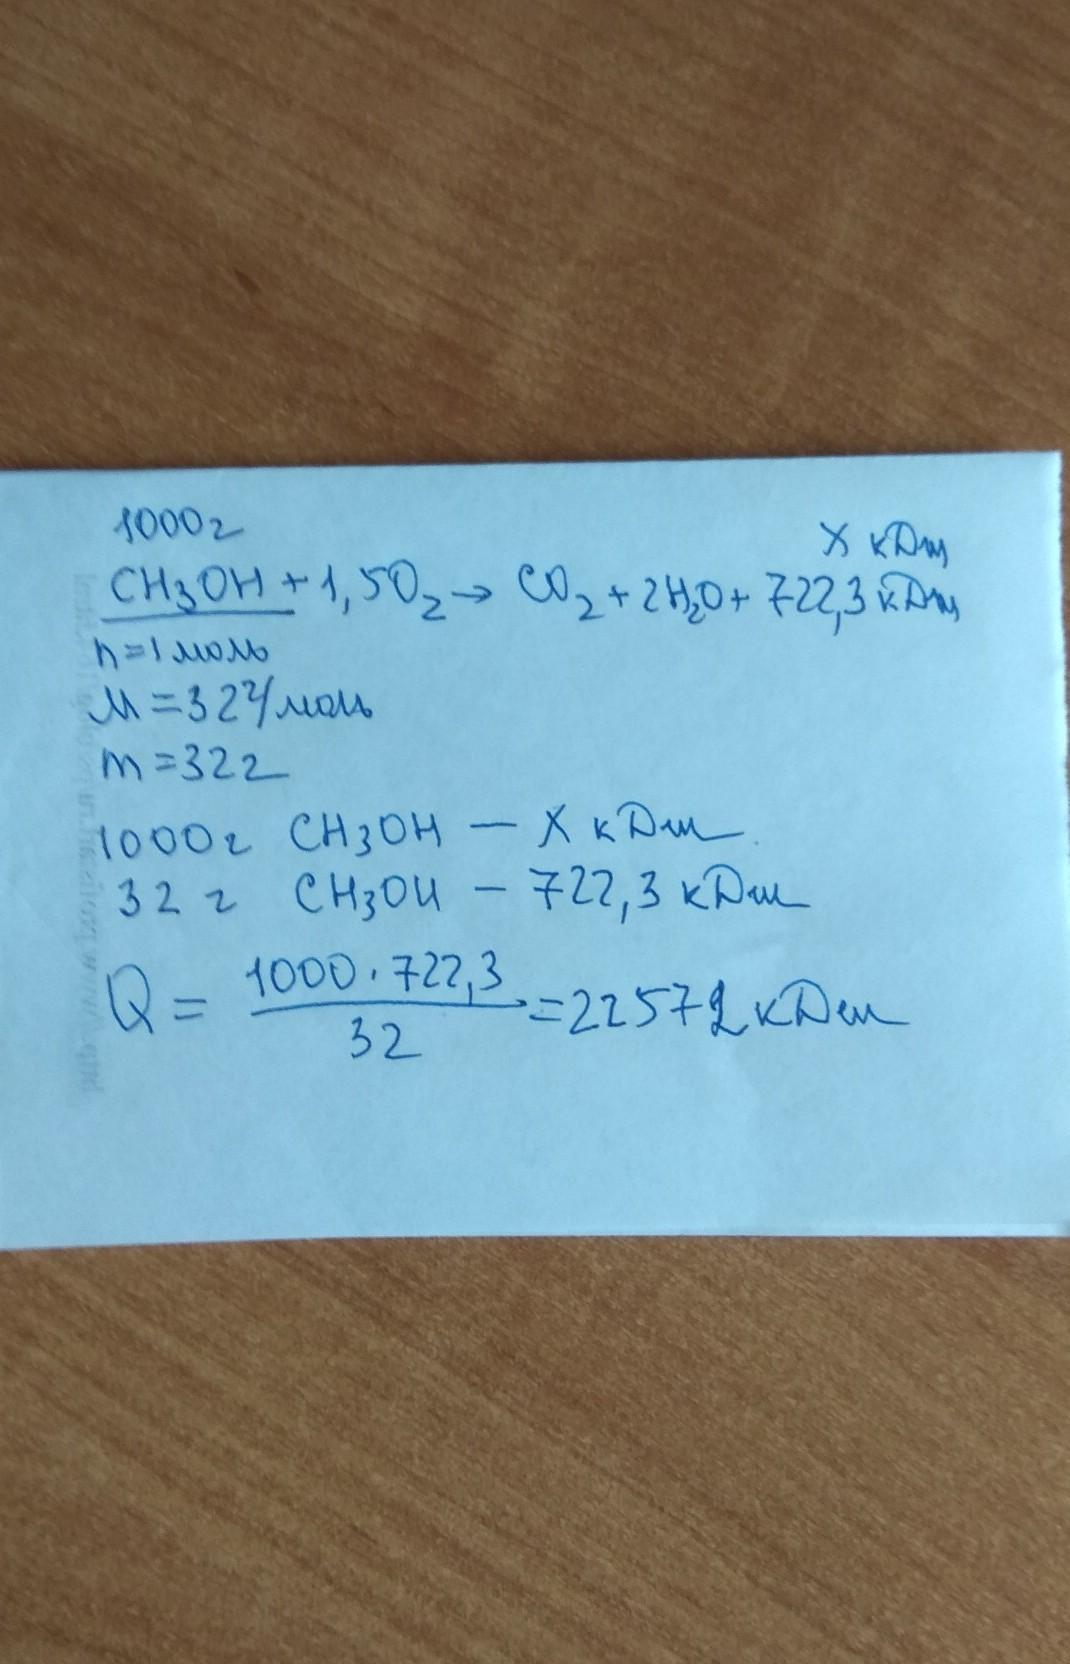 1000г
x кДж
CH₃OH + 1,5O₂ → CO₂ + 2H₂O + 722,3 кДж
n=1 моль
M=32 г/моль
m=32г
1000г CH₃OH — X кДж
32 г CH₃OH — 722,3 кДж
Q = 1000·722,3 / 32 = 22572 кДж